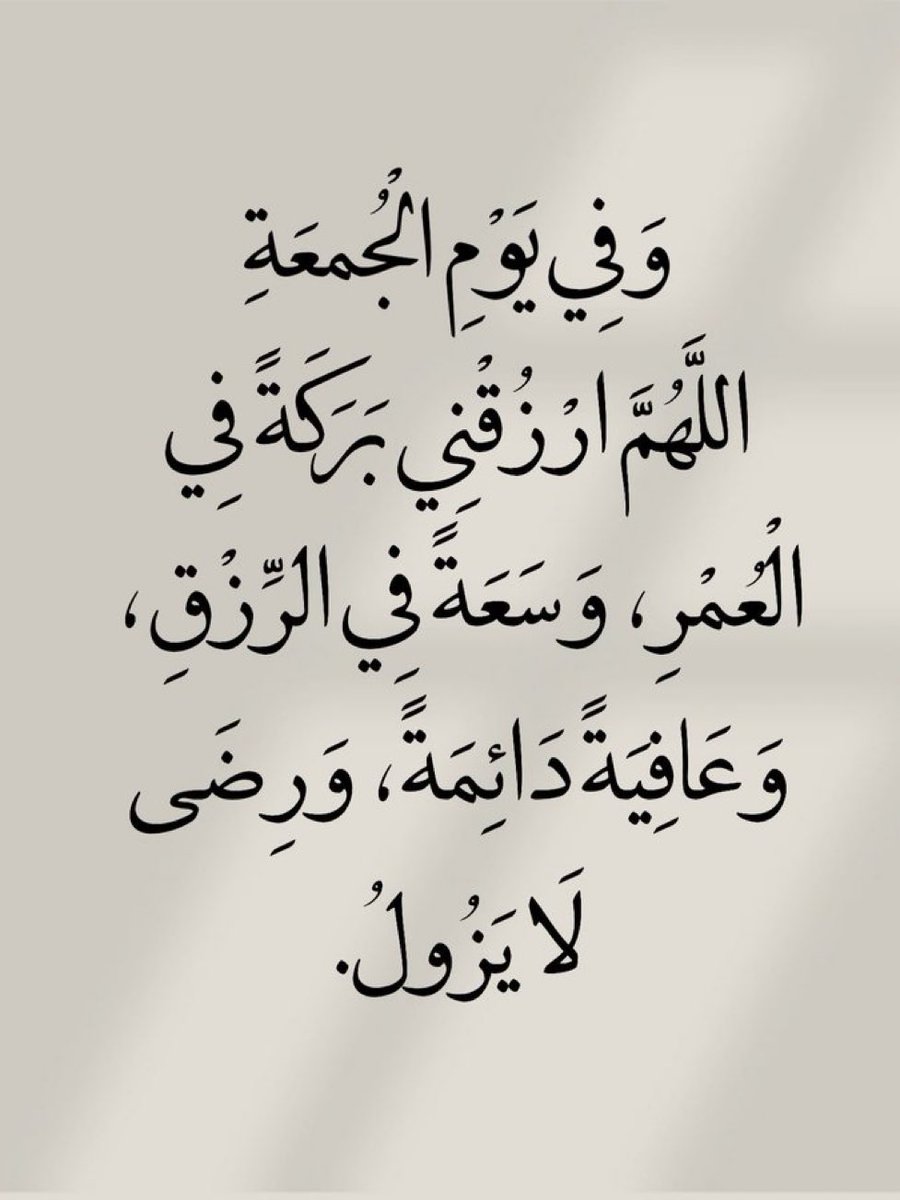 وَفِي يَوْمِ الْجُمعَةِ
اللَّهُمَّ ارْزُقْنِي بَرَكَةً فِي
الْعُمْرِ، وَسَعَةً فِي الرِّزْقِ،
وَعَافِيَةً دَائِمَةً، وَرِضَى
لَا يَزُولُ.